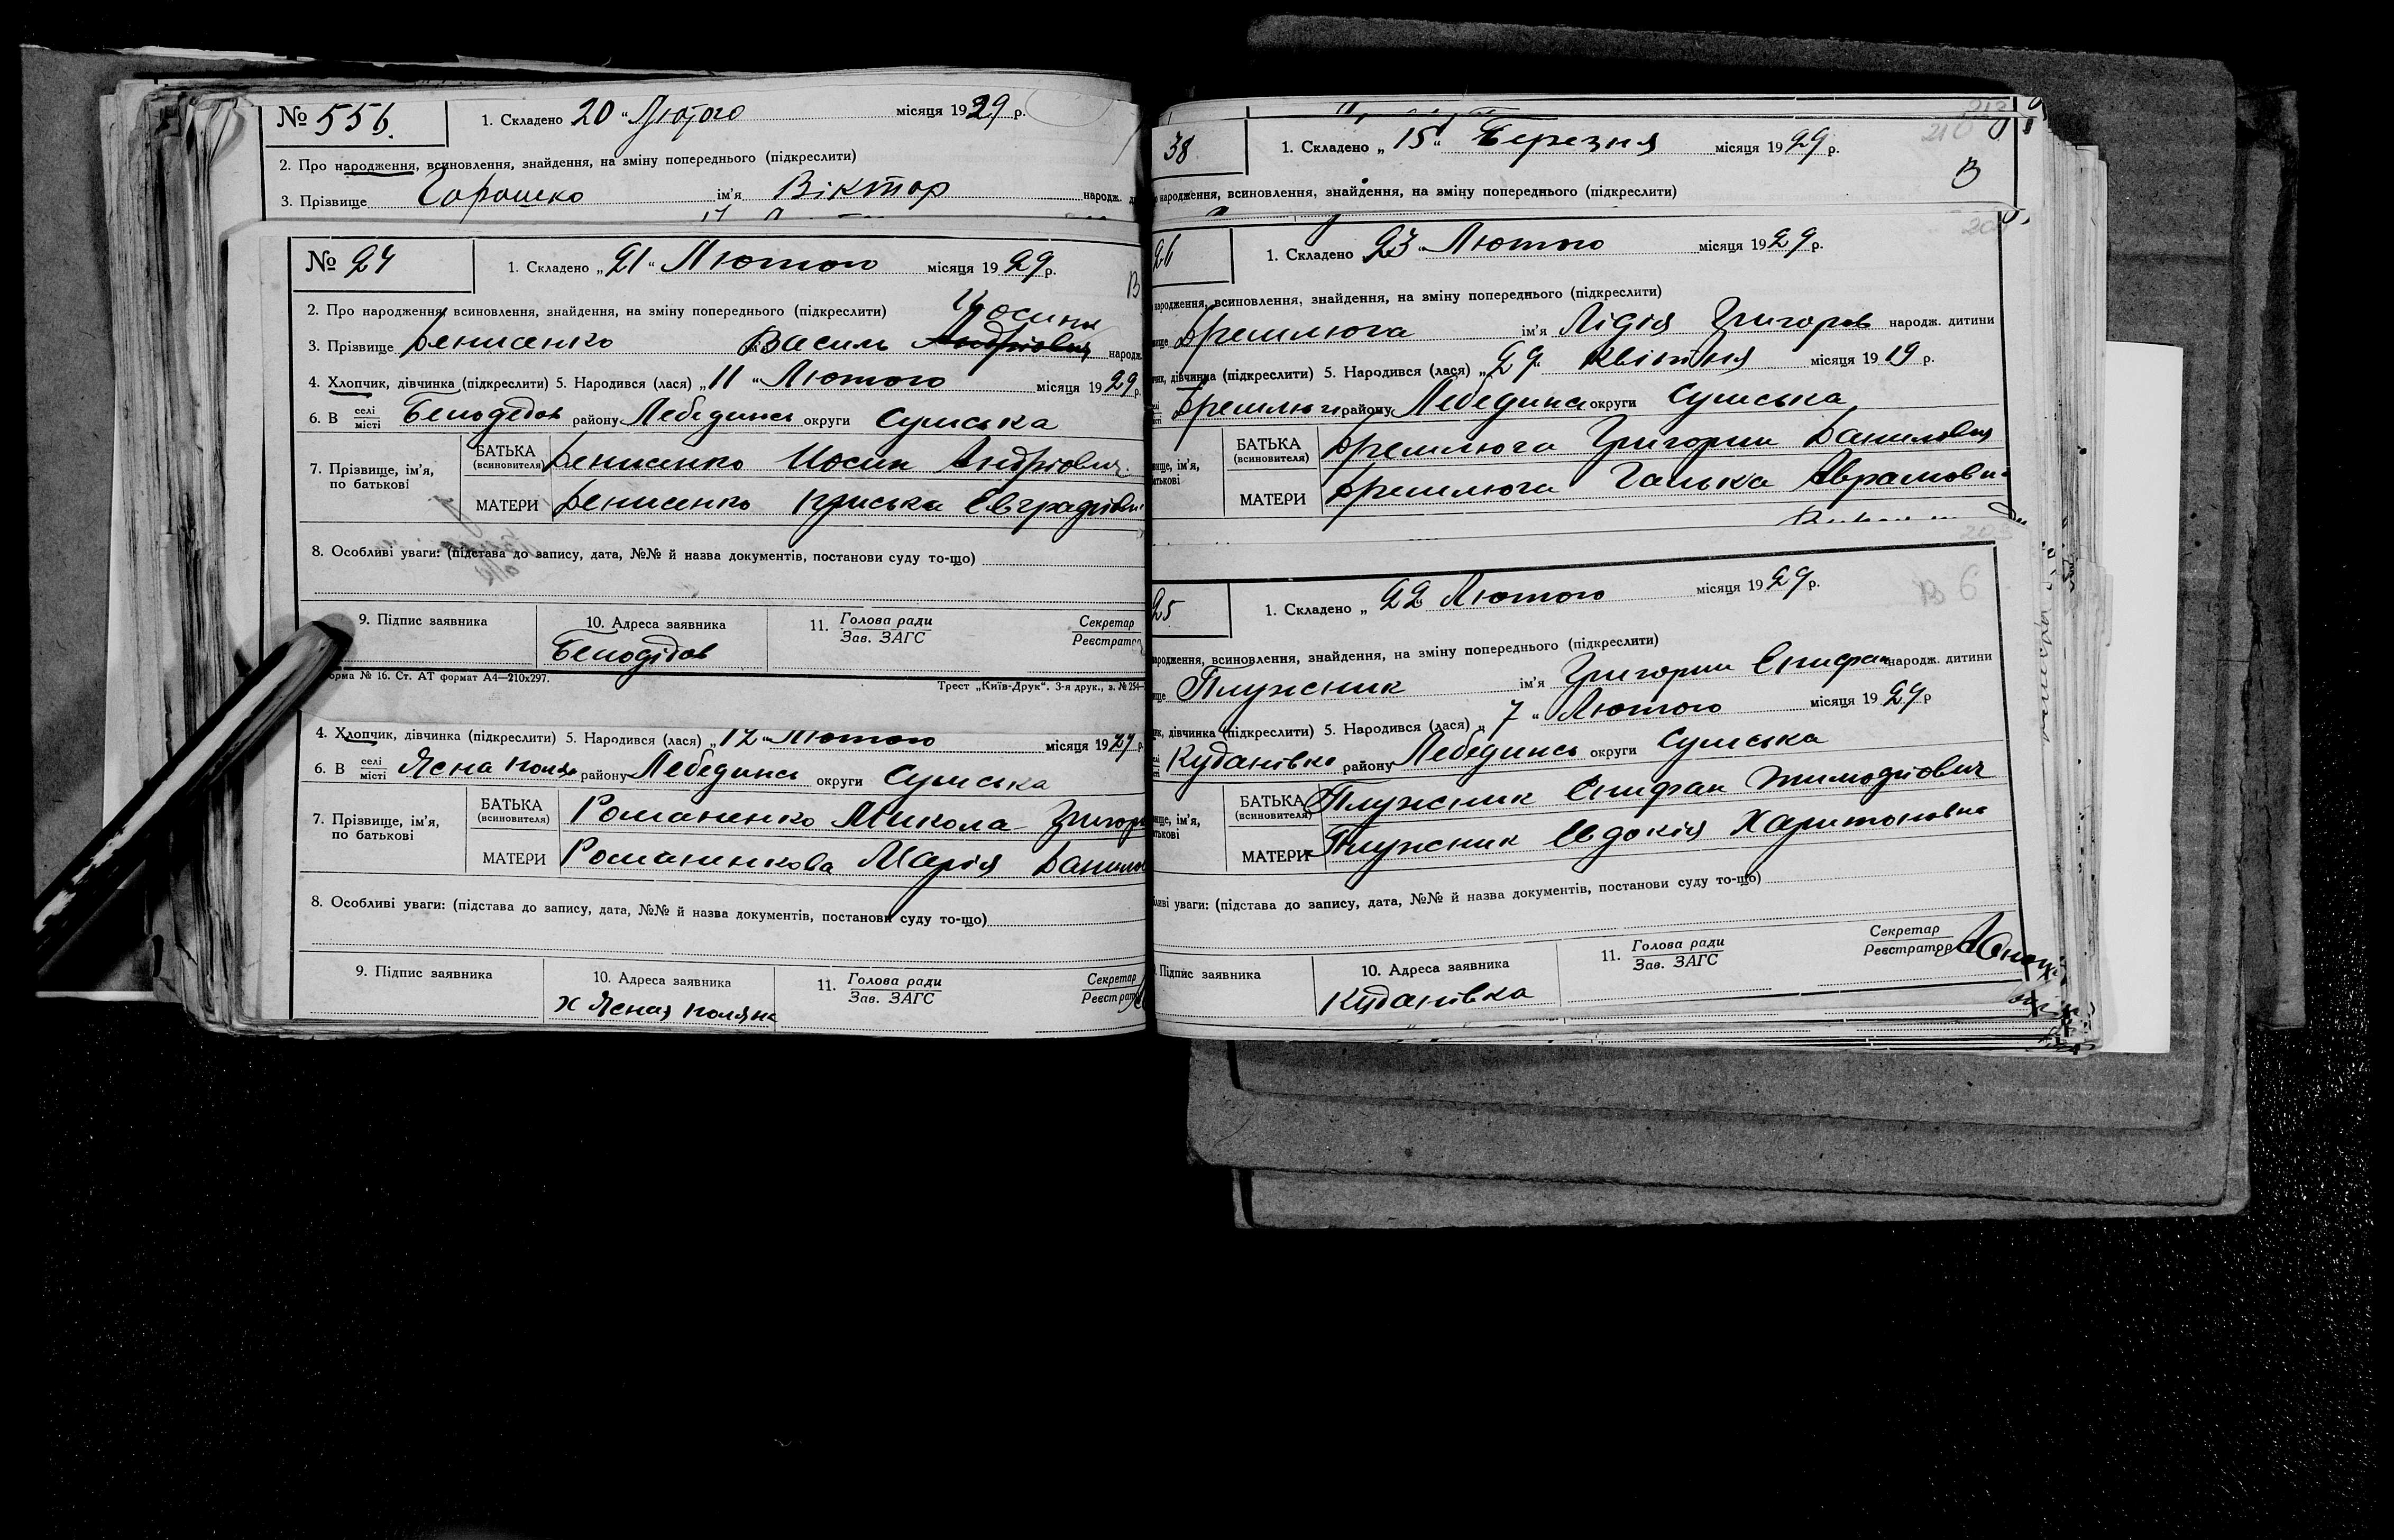 № 556. 1. Складено 20 "Лютого місяця 1929 р.
2. Про народження, всиновлення, знайдення, на зміну попереднього (підкреслити)
3. Прізвище Горошко ім'я Віктор народж.
№ 24 1. Складено „21" Лютого місяця 1929 р.
В
2. Про народження, всиновлення, знайдення, на зміну попереднього (підкреслити)
3. Прізвище Денисенко Василь Андріович Йосипов народж.
4. Хлопчик, дівчинка (підкреслити) 5. Народився (лася) „11 "Лютого місяця 1929 р.
6. В селі місті Белодедов району Лебединсь округи Сумська
7. Прізвище, ім'я, по батькові БАТЬКА (всиновителя) Денисенко Иосип Андріович
МАТЕРИ Денисенко Приська Евграфіовн
8. Особливі уваги: (підстава до запису, дата, №№ й назва документів, постанови суду то-що)
9. Підпис заявника 10. Адреса заявника 11. Голова ради Зав. ЗАГС Секретар Реєстратор
Белодідов
форма № 16. Ст. АТ формат А4—210х297. Трест „Київ-Друк". 3-я друк., з. № 254—
4. Хлопчик, дівчинка (підкреслити) 5. Народився (лася) „12 "Лютого місяця 1929 р.
6. В селі місті Ясна поляна району Лебединсь округи Сумська
7. Прізвище, ім'я, по батькові БАТЬКА (всиновителя) Романенко Микола Григор
МАТЕРИ Романенкова Марія Данилов
8. Особливі уваги: (підстава до запису, дата, №№ й назва документів, постанови суду то-що)
9. Підпис заявника 10. Адреса заявника 11. Голова ради Зав. ЗАГС Секретар Реєстрат
х Ясная поляна
38 1. Складено „15" Березня місяця 1929 р.
В
народження, всиновлення, знайдення, на зміну попереднього (підкреслити)
26 1. Складено 23 "Лютого місяця 1929 р.
народження, всиновлення, знайдення, на зміну попереднього (підкреслити)
Дремлюга ім'я Лідія Григоров народж. дитини
дівчинка (підкреслити) 5. Народився (лася) „29" Квітня місяця 1919 р.
Дремлюги району Лебединсь округи Сумська
БАТЬКА (всиновителя) Дремлюга Григорий Данилович
МАТЕРИ Дремлюга Ганька Аврамовн
25 1. Складено „22 Лютого місяця 1929 р.
В 6
народження, всиновлення, знайдення, на зміну попереднього (підкреслити)
Плужник ім'я Григорий Епифан народж. дитини
дівчинка (підкреслити) 5. Народився (лася) „7 "Лютого місяця 1929 р
Кудановка району Лебединсь округи Сумська
БАТЬКА (всиновителя) Плужник Епифан Тимофіович
МАТЕРИ Плужник Евдокія Харитоновна
уваги: (підстава до запису, дата, №№ й назва документів, постанови суду то-що)
Підпис заявника 10. Адреса заявника 11. Голова ради Зав. ЗАГС Секретар Реєстратор
Кудановка